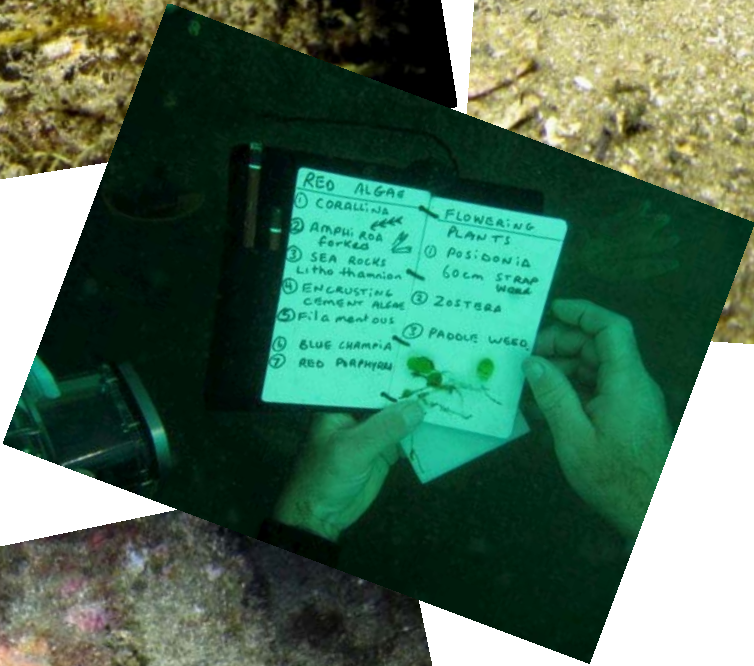 RED ALGAE
① CORALLINA
② AMPHIROA
forked
③ SEA ROCKS
Lithothamnion
④ ENCRUSTING
CEMENT ALGAE
⑤ Filamentous
⑥ BLUE CHAMPIA
⑦ RED PORPHYRA
FLOWERING
PLANTS
① POSIDONIA
60cm STRAP
WEED
② ZOSTERA
③ PADDLE WEED